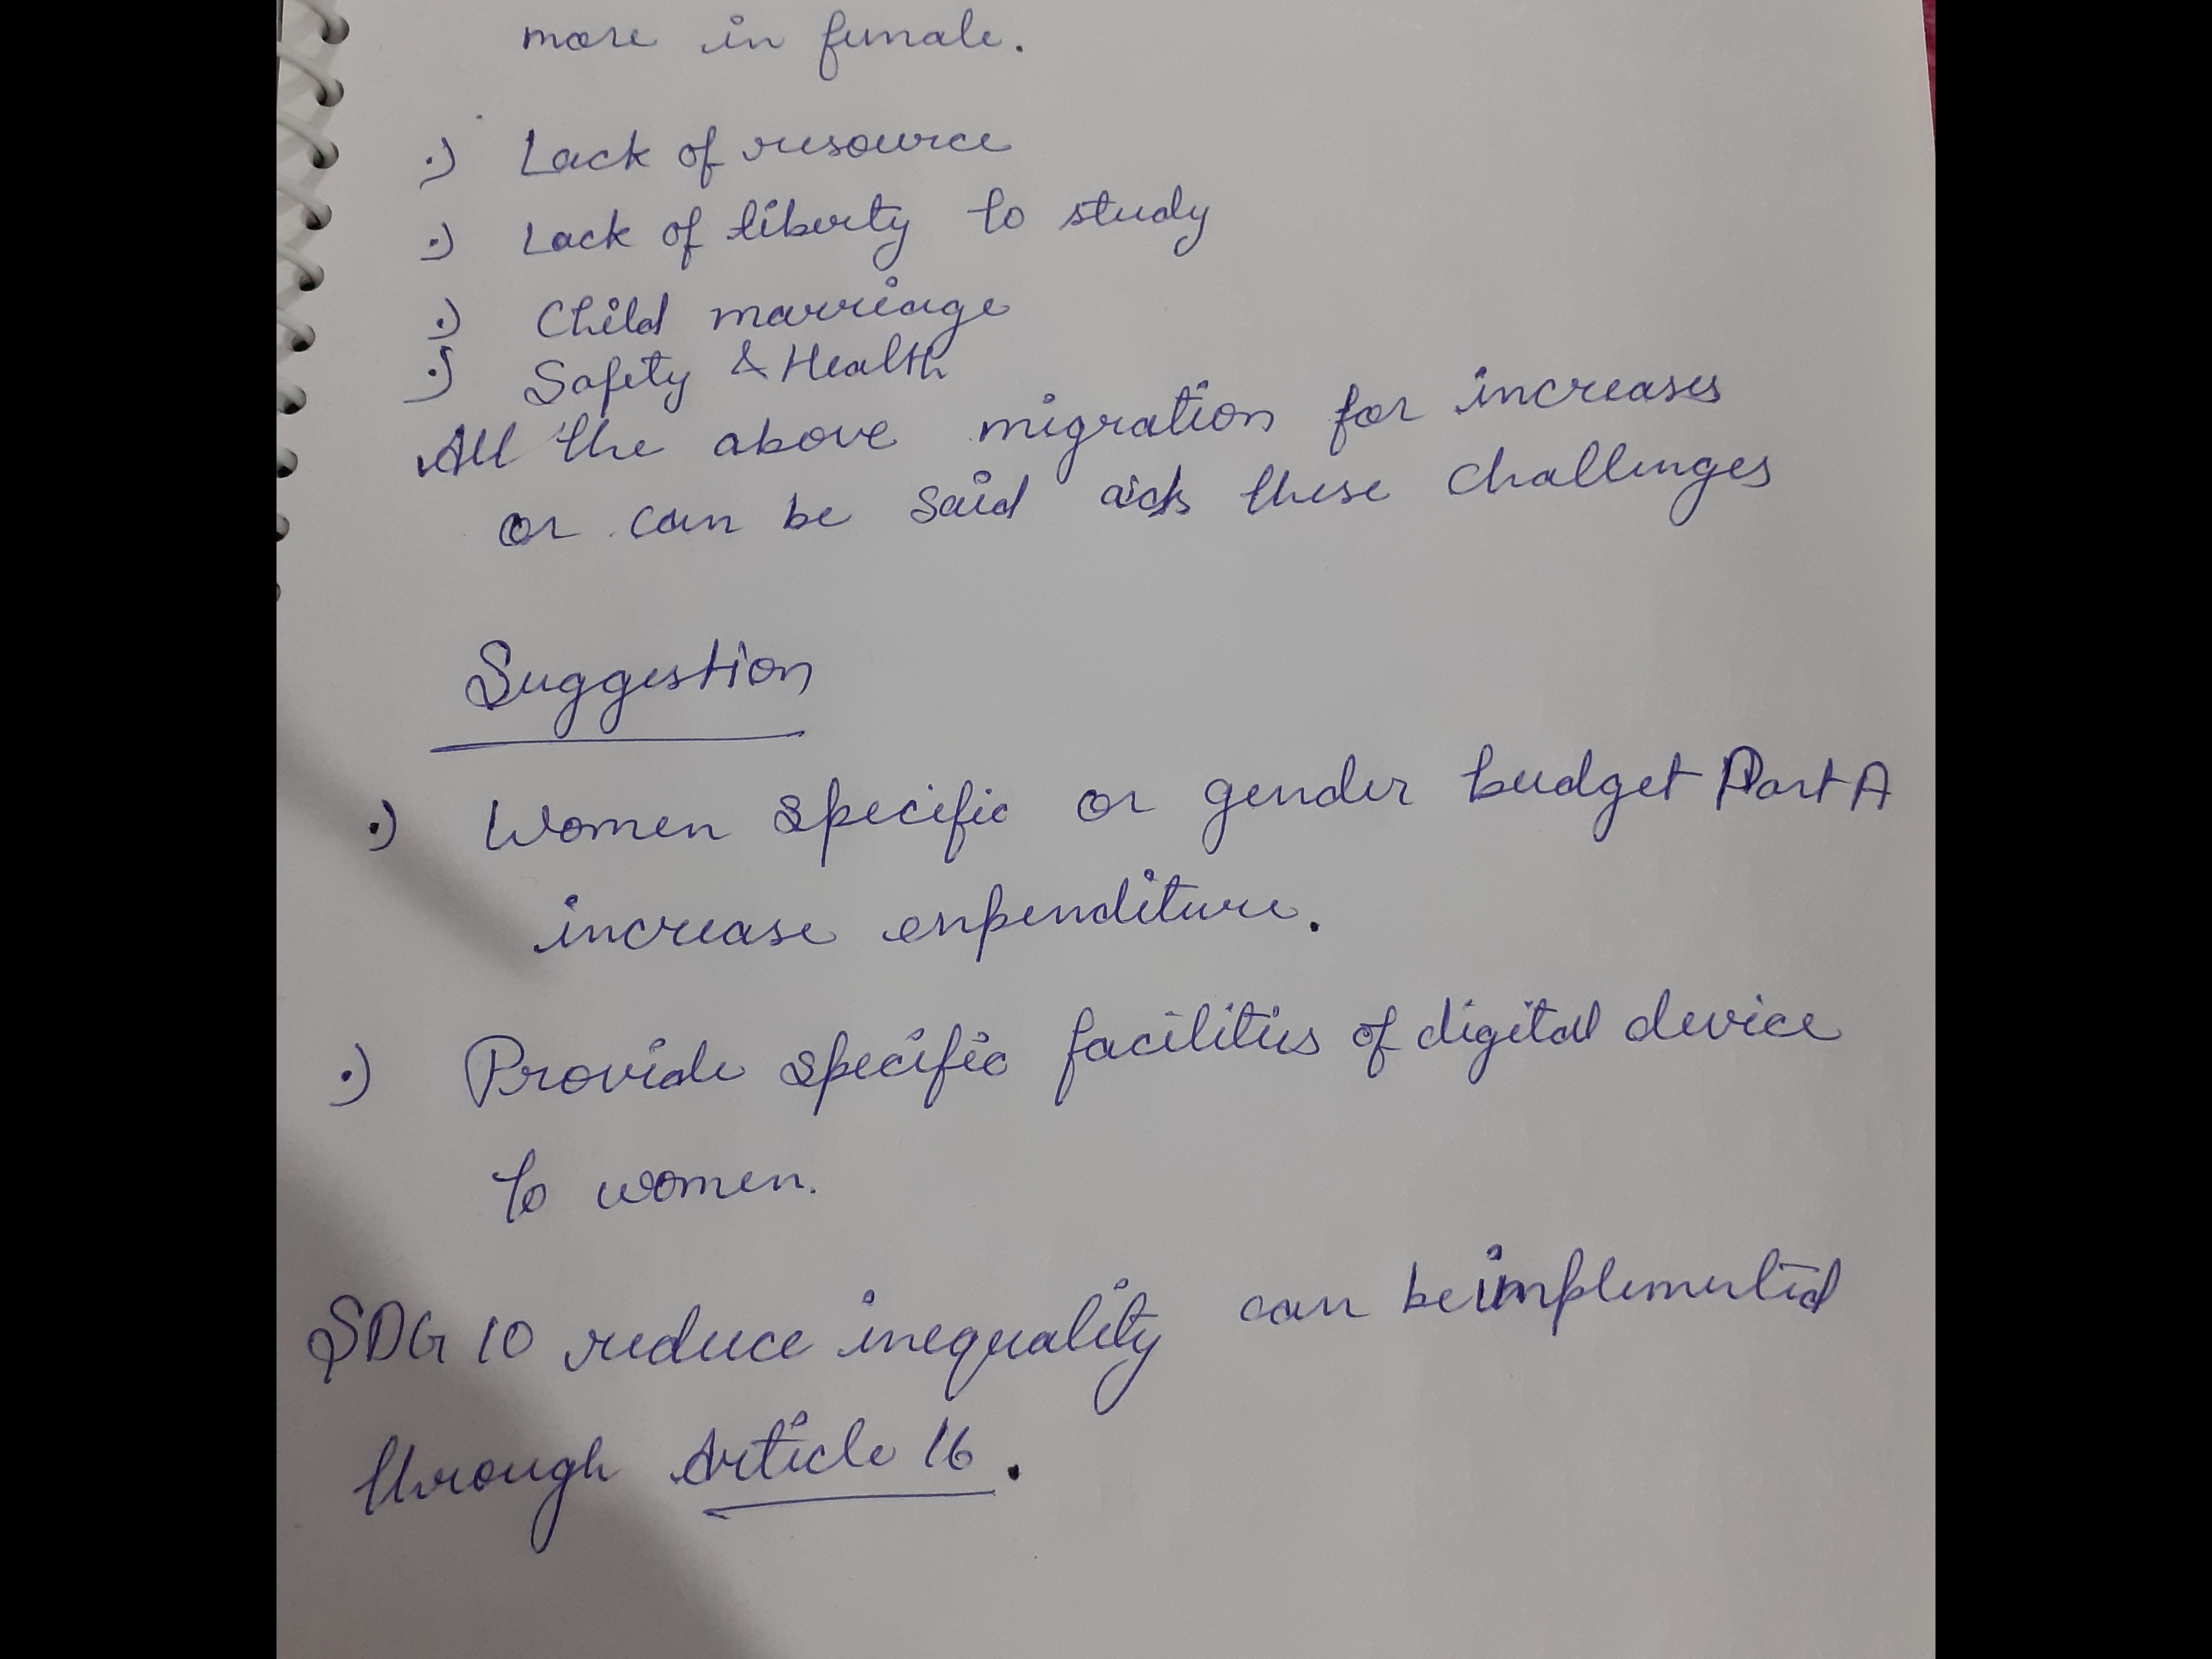 more in female.
.) Lack of resource
.) Lack of liberty to study
.) Child marriage
.) Safety & Health
All the above migration for increases
or can be said aids these challenges
Suggestion
.) Women specific or gender budget Part A
increase expenditure.
.) Provide specific facilities of digital device
to women.
SDG 10 reduce inequality can be implemented
through Article 16.